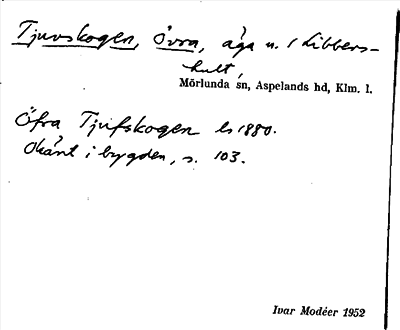 Tjuvskogen, Övra, äga u. / Libbers-
hult,
Mörlunda sn, Aspelands hd, Klm. l.
Öfra Tjufskogen ls 1880.
Okänt i bygden, s. 103.
Ivar Modéer 1952